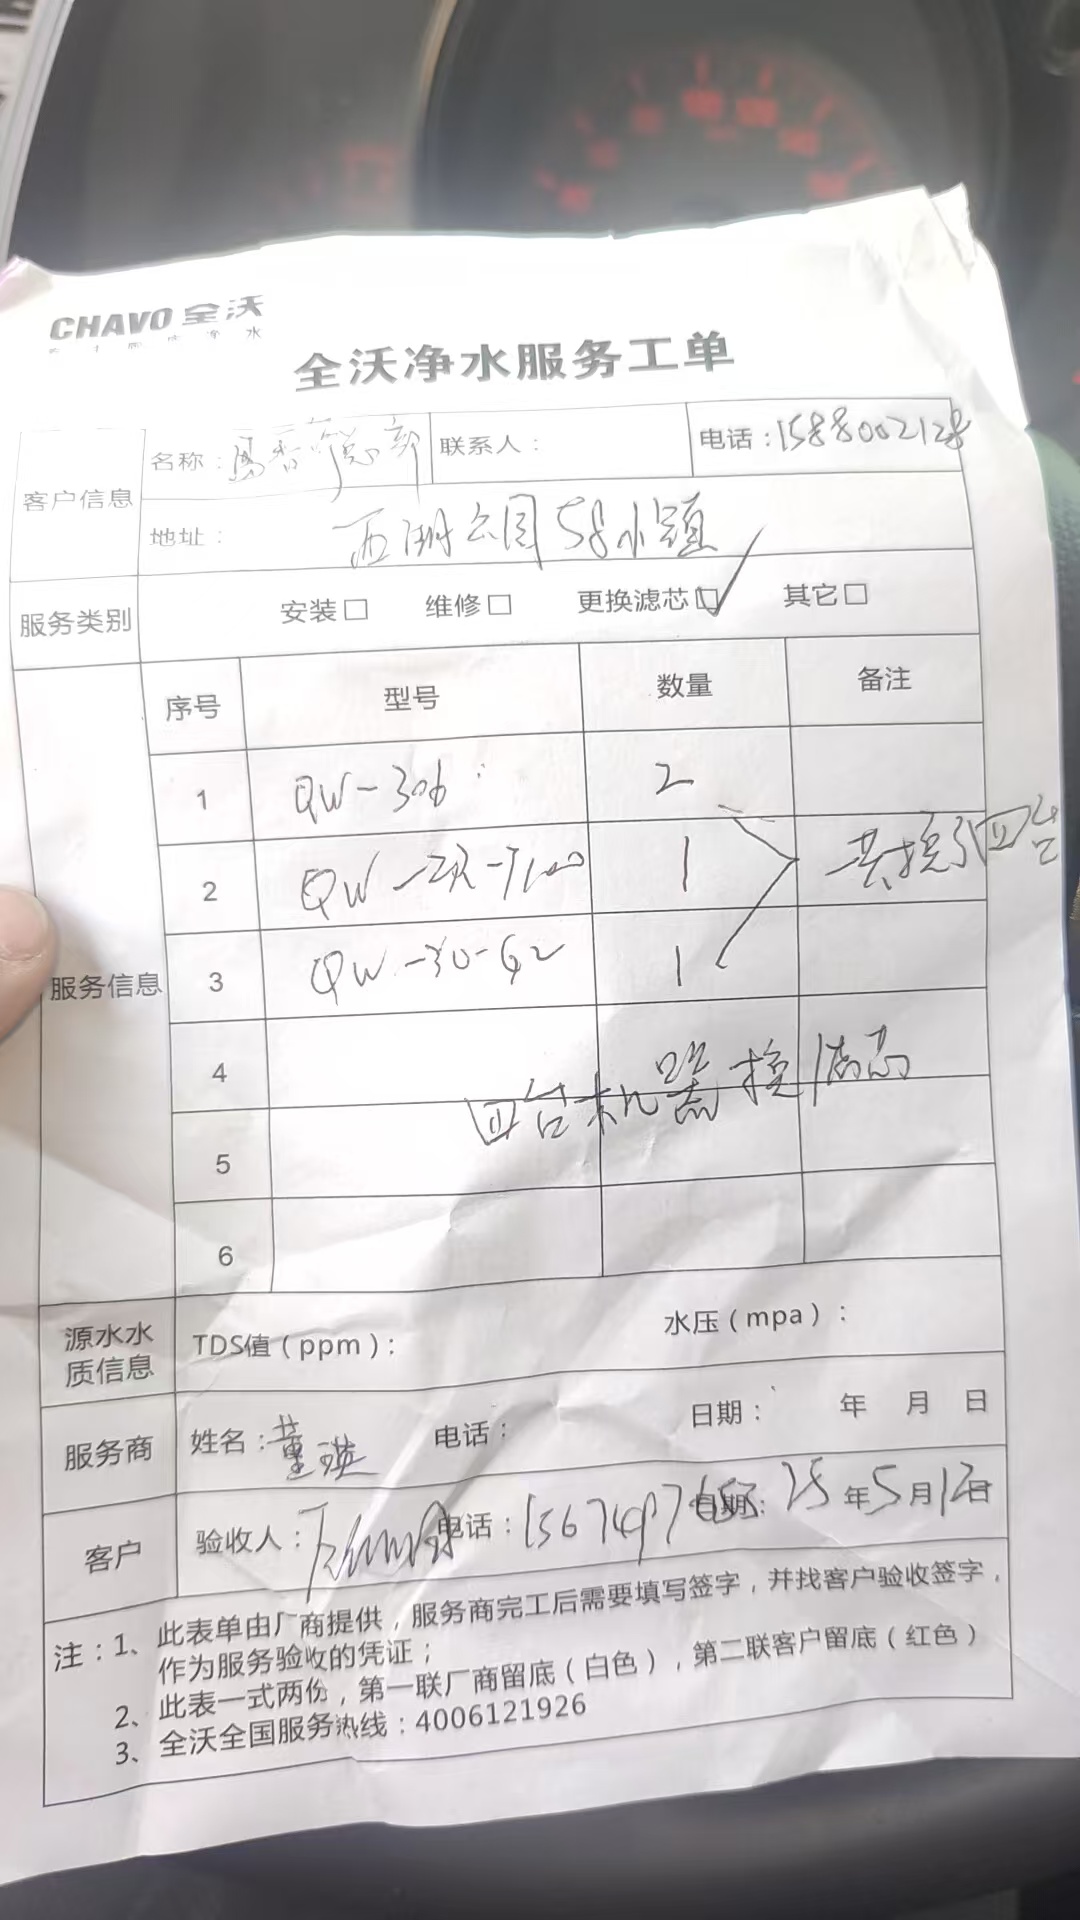 CHAVO 全沃
全沃净水服务工单
客户信息
名称：
联系人：
电话：15888002128
地址：西湖公园58小镇
服务类别
安装□ 维修□ 更换滤芯□✓ 其它□
服务信息
序号 型号 数量 备注
1 QW-306 2
2 QW 1 共换了四台
3 QW-30-G2 1
4
四台机器换滤芯
5
6
源水水质信息
TDS值（ppm）：
水压（mpa）：
服务商
姓名：董瑛 电话： 日期： 年 月 日
客户
验收人： 电话： 日期：25年5月12日
注：1、此表单由厂商提供，服务商完工后需要填写签字，并找客户验收签字，
作为服务验收的凭证；
2、此表一式两份，第一联厂商留底（白色），第二联客户留底（红色）
3、全沃全国服务热线：4006121926